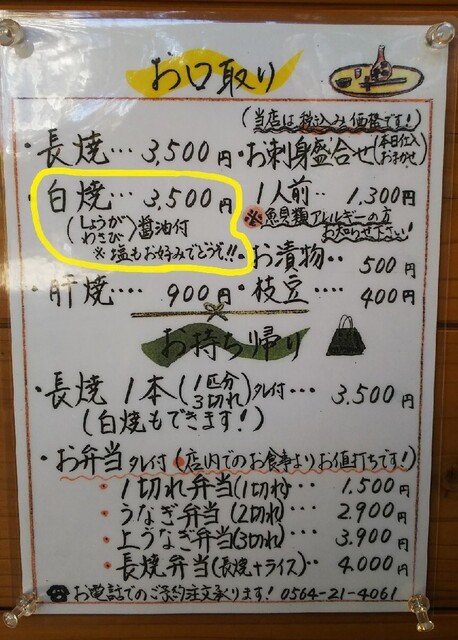 お口取り
(当店は税込み価格です!)
・長焼… 3,500円
・白焼… 3,500円
(しょうが わさび)醤油付
※塩もお好みでどうぞ!!
・肝焼… 900円
・お刺身盛合せ(本日仕入 おまかせ)
1人前‥ 1,300円
※魚貝類アレルギーの方
お知らせ下さい!
・お漬物‥ 500円
・枝豆‥‥ 400円
お持ち帰り
・長焼1本(1匹分 3切れ)タレ付… 3,500円
(白焼もできます!)
・お弁当タレ付(●店内でのお食事よりお値打ちです!)
・1切れ弁当(1切れ)‥ 1,500円
・うなぎ弁当(2切れ)‥ 2,900円
・上うなぎ弁当(3切れ)‥ 3,900円
・長焼弁当(長焼+ライス)‥ 4,000円
☎お電話でのご予約注文承ります! 0564-21-4061